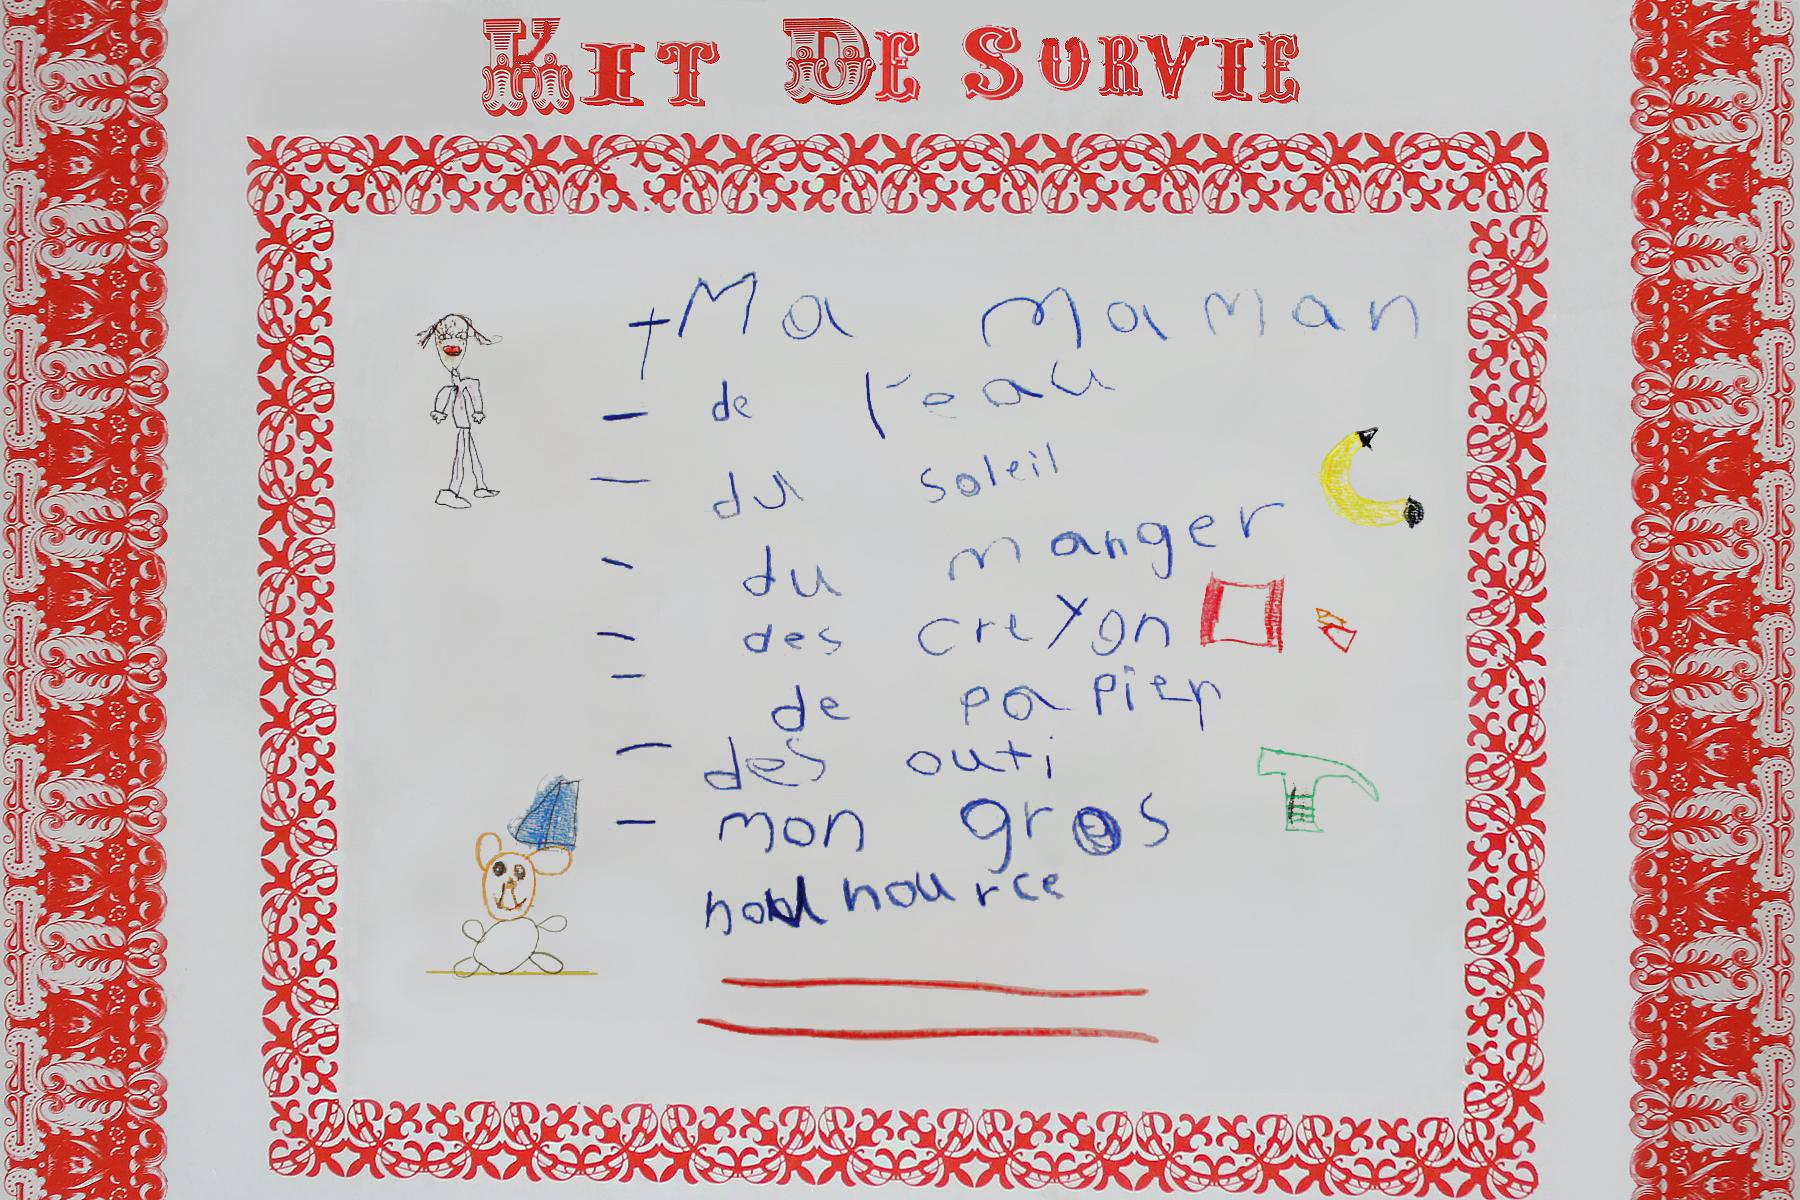 Kit De Survie
+ Ma maman
- de l'eau
- du soleil
- du manger
- des creyon
- de papier
- des outi
- mon gros
nounource